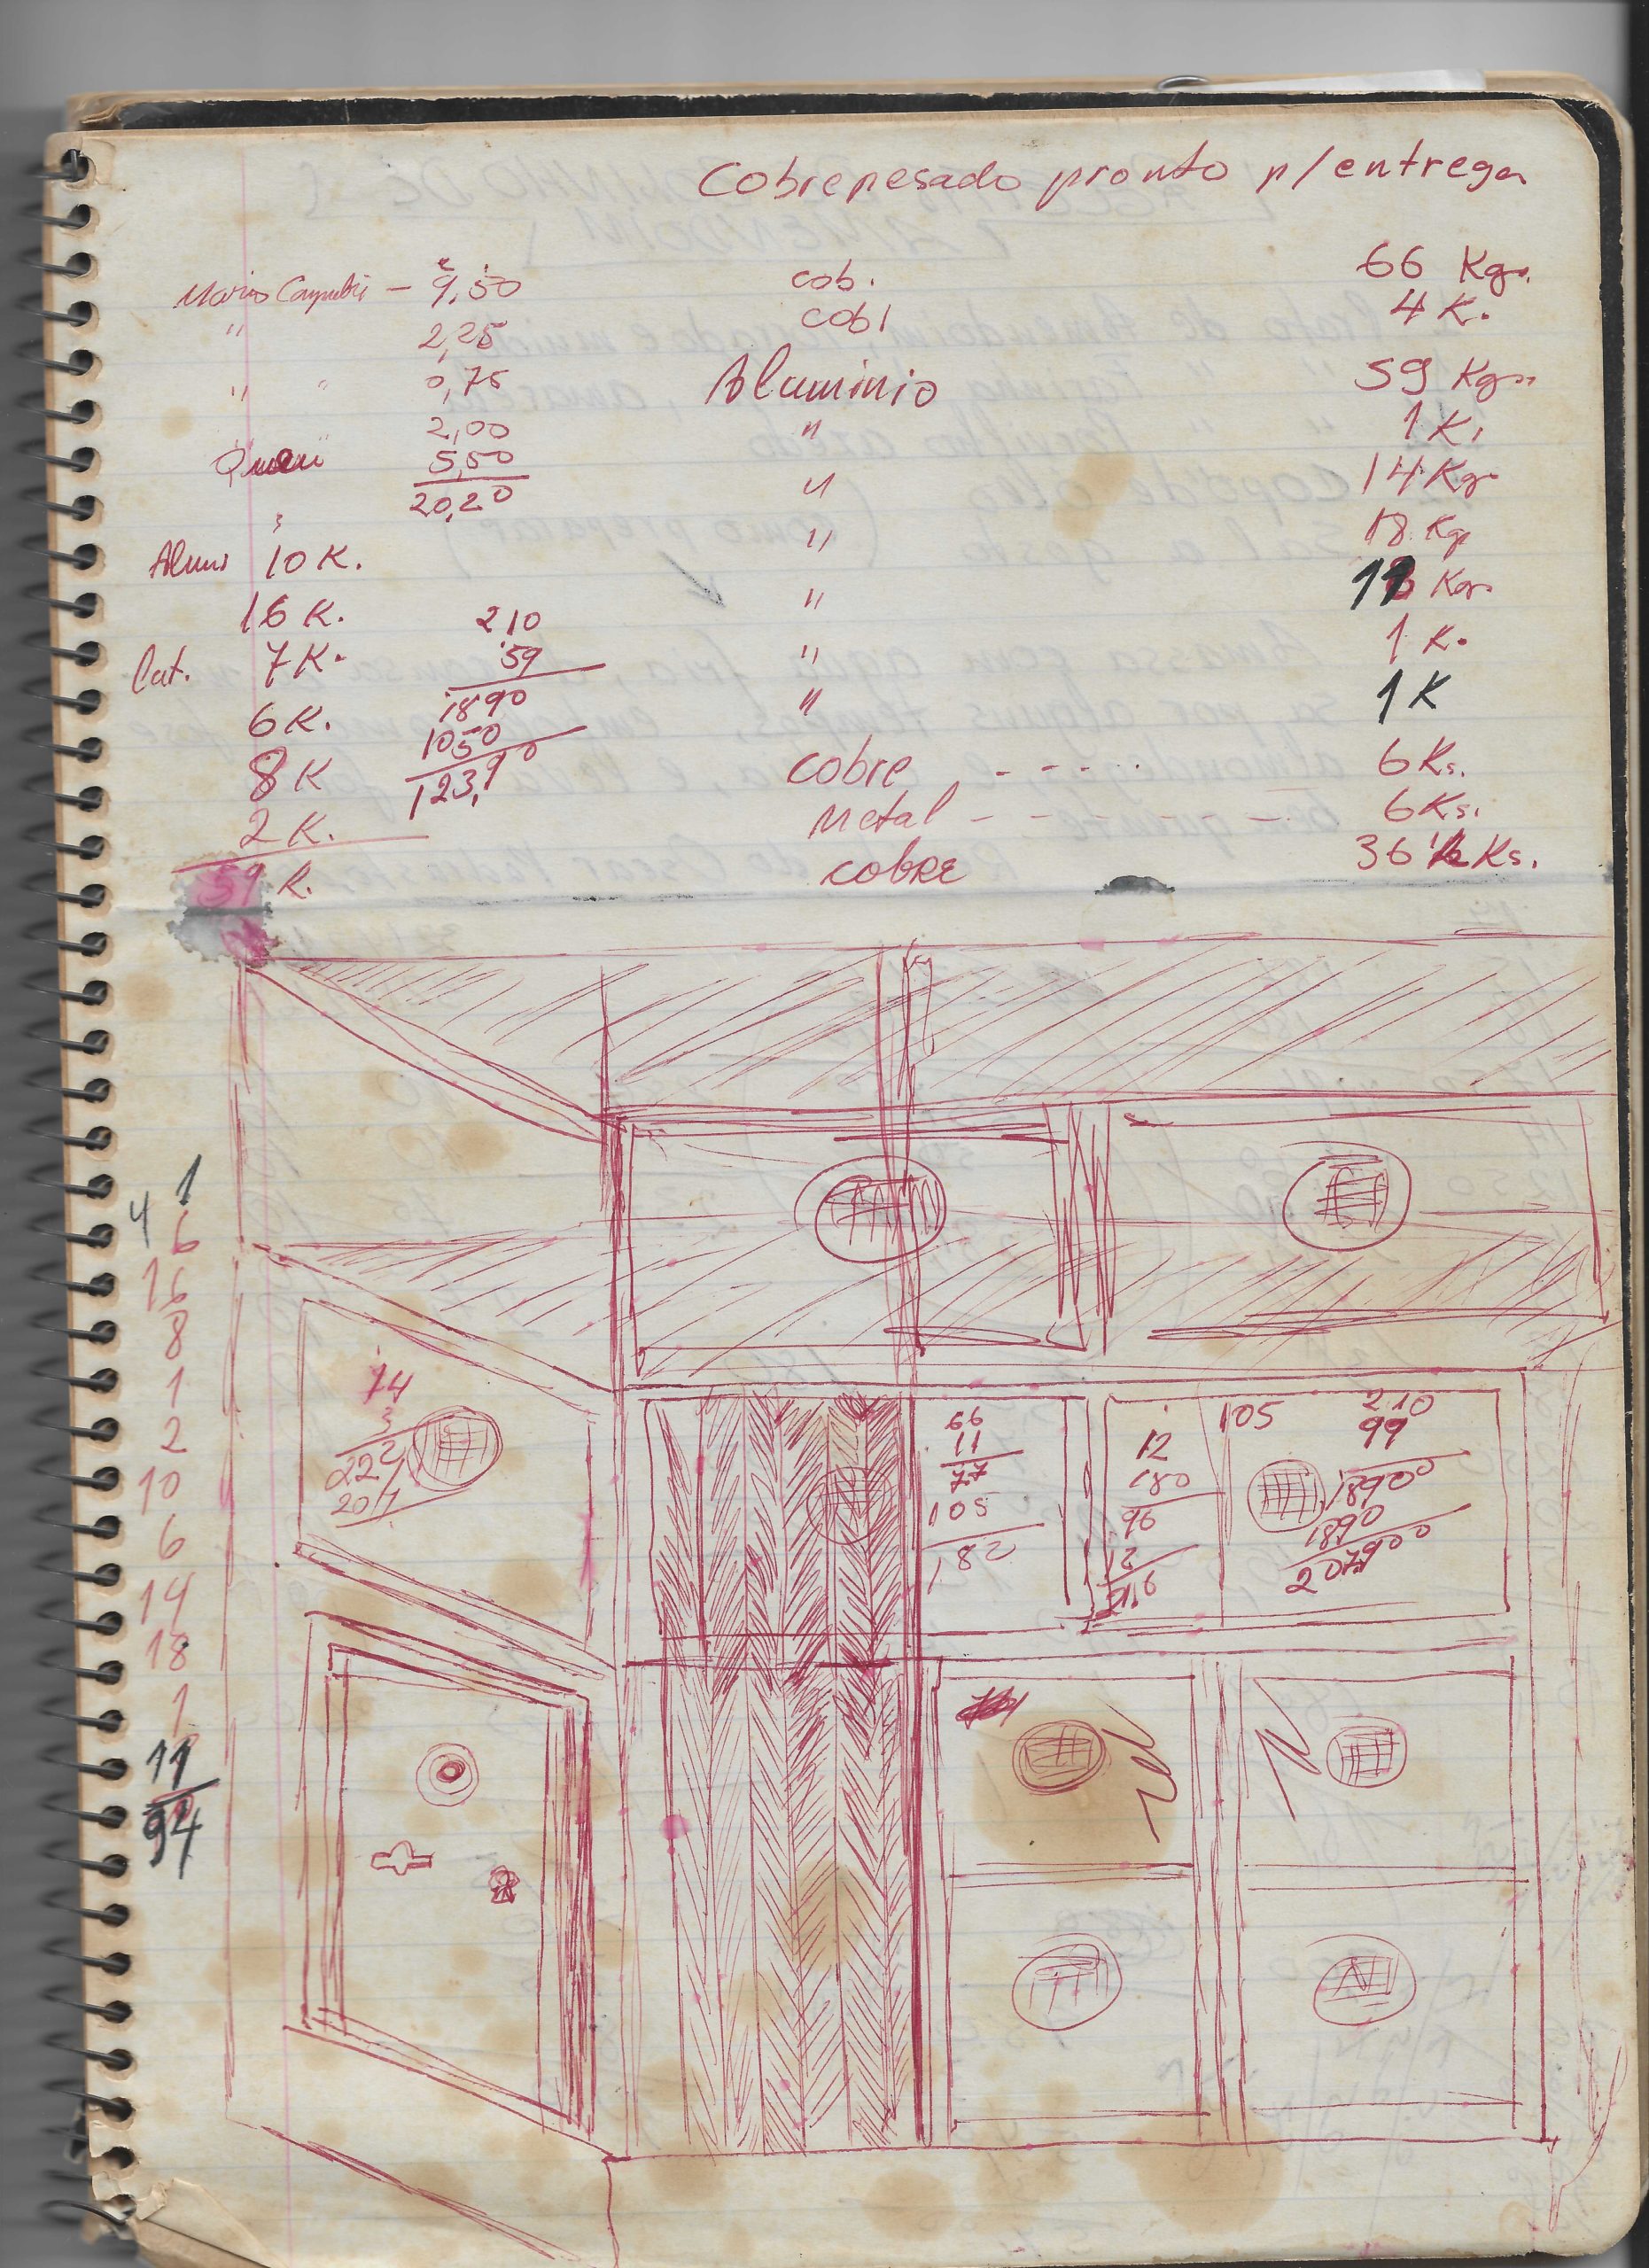 Cobre pesado pronto p/ entrega
cob. 66 Kgs.
cob 4 K.
Aluminio 59 Kgs
" 1 K.
" 14 Kgs
" 18 Kgs
" 11 Kgs
" 1 K.
" 1 K
cobre - - - - 6 Ks.
Metal - - - - - - 6 Ks.
cobre 36 1/2 Ks.
Mario - 9,50
" 2,25
" " 0,75
2,00
5,50
20,20
Alum 10 K.
16 K.
Cat. 7 K.
6 K.
8 K
2 K.
59 K.
210
59
1890
1050
123,90
1
4 6
16
8
1
2
10
6
14
18
1
11
94
14
3
222
20/1
66
11
77
105
182
12
180
96
12
216
105
210
99
18900
1890
207900